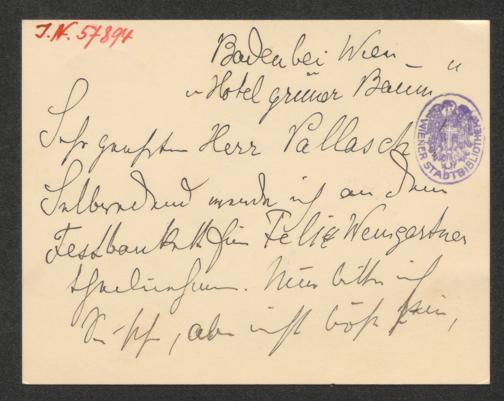 J.N. 57894
Baden bei Wien
"Hotel grüner Baum"
WIENER STADTBIBLIOTHEK
Sehr geehrter Herr Pallasch
Selbredend werde ich an dem
Festbankett für Felix Weingartner
theilnehmen. Nun bitte ich
Sie sehr, aber nicht böse sein,